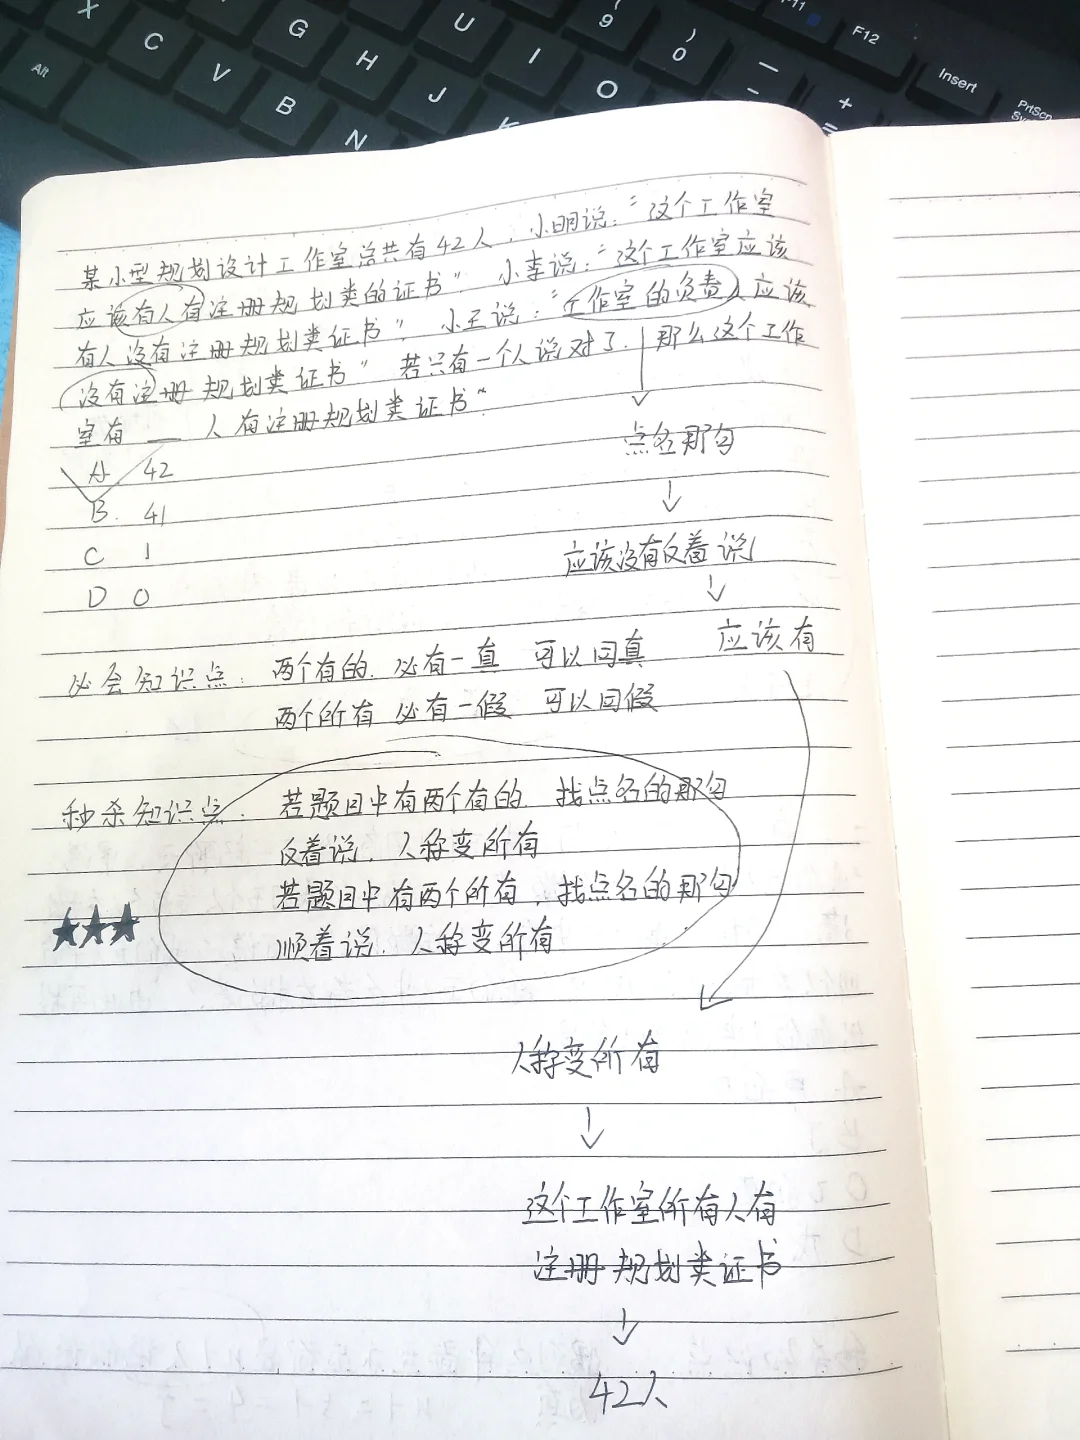 某小型规划设计工作室总共有42人，小明说："这个工作室
应该有人有注册规划类的证书" 小李说："这个工作室应该
有人没有注册规划类证书" 小王说："工作室的负责人应该
没有注册规划类证书" 若只有一个人说对了，那么这个工作
室有 __ 人有注册规划类证书
A 42
B. 41
C 1
D 0
点名那句
应该没有反着说
应该有
必会知识点：两个有的 必有一真 可以同真
两个所有 必有一假 可以同假
秒杀知识点：若题目中有两个有的，找点名的那句
反着说，人称变所有
若题目中有两个所有，找点名的那句
顺着说，人称变所有
人称变所有
这个工作室所有人有
注册规划类证书
42人
X
C
V
B
N
G
H
J
K
U
I
O
9
)
0
F11
F12
Insert
PrtScn
Alt